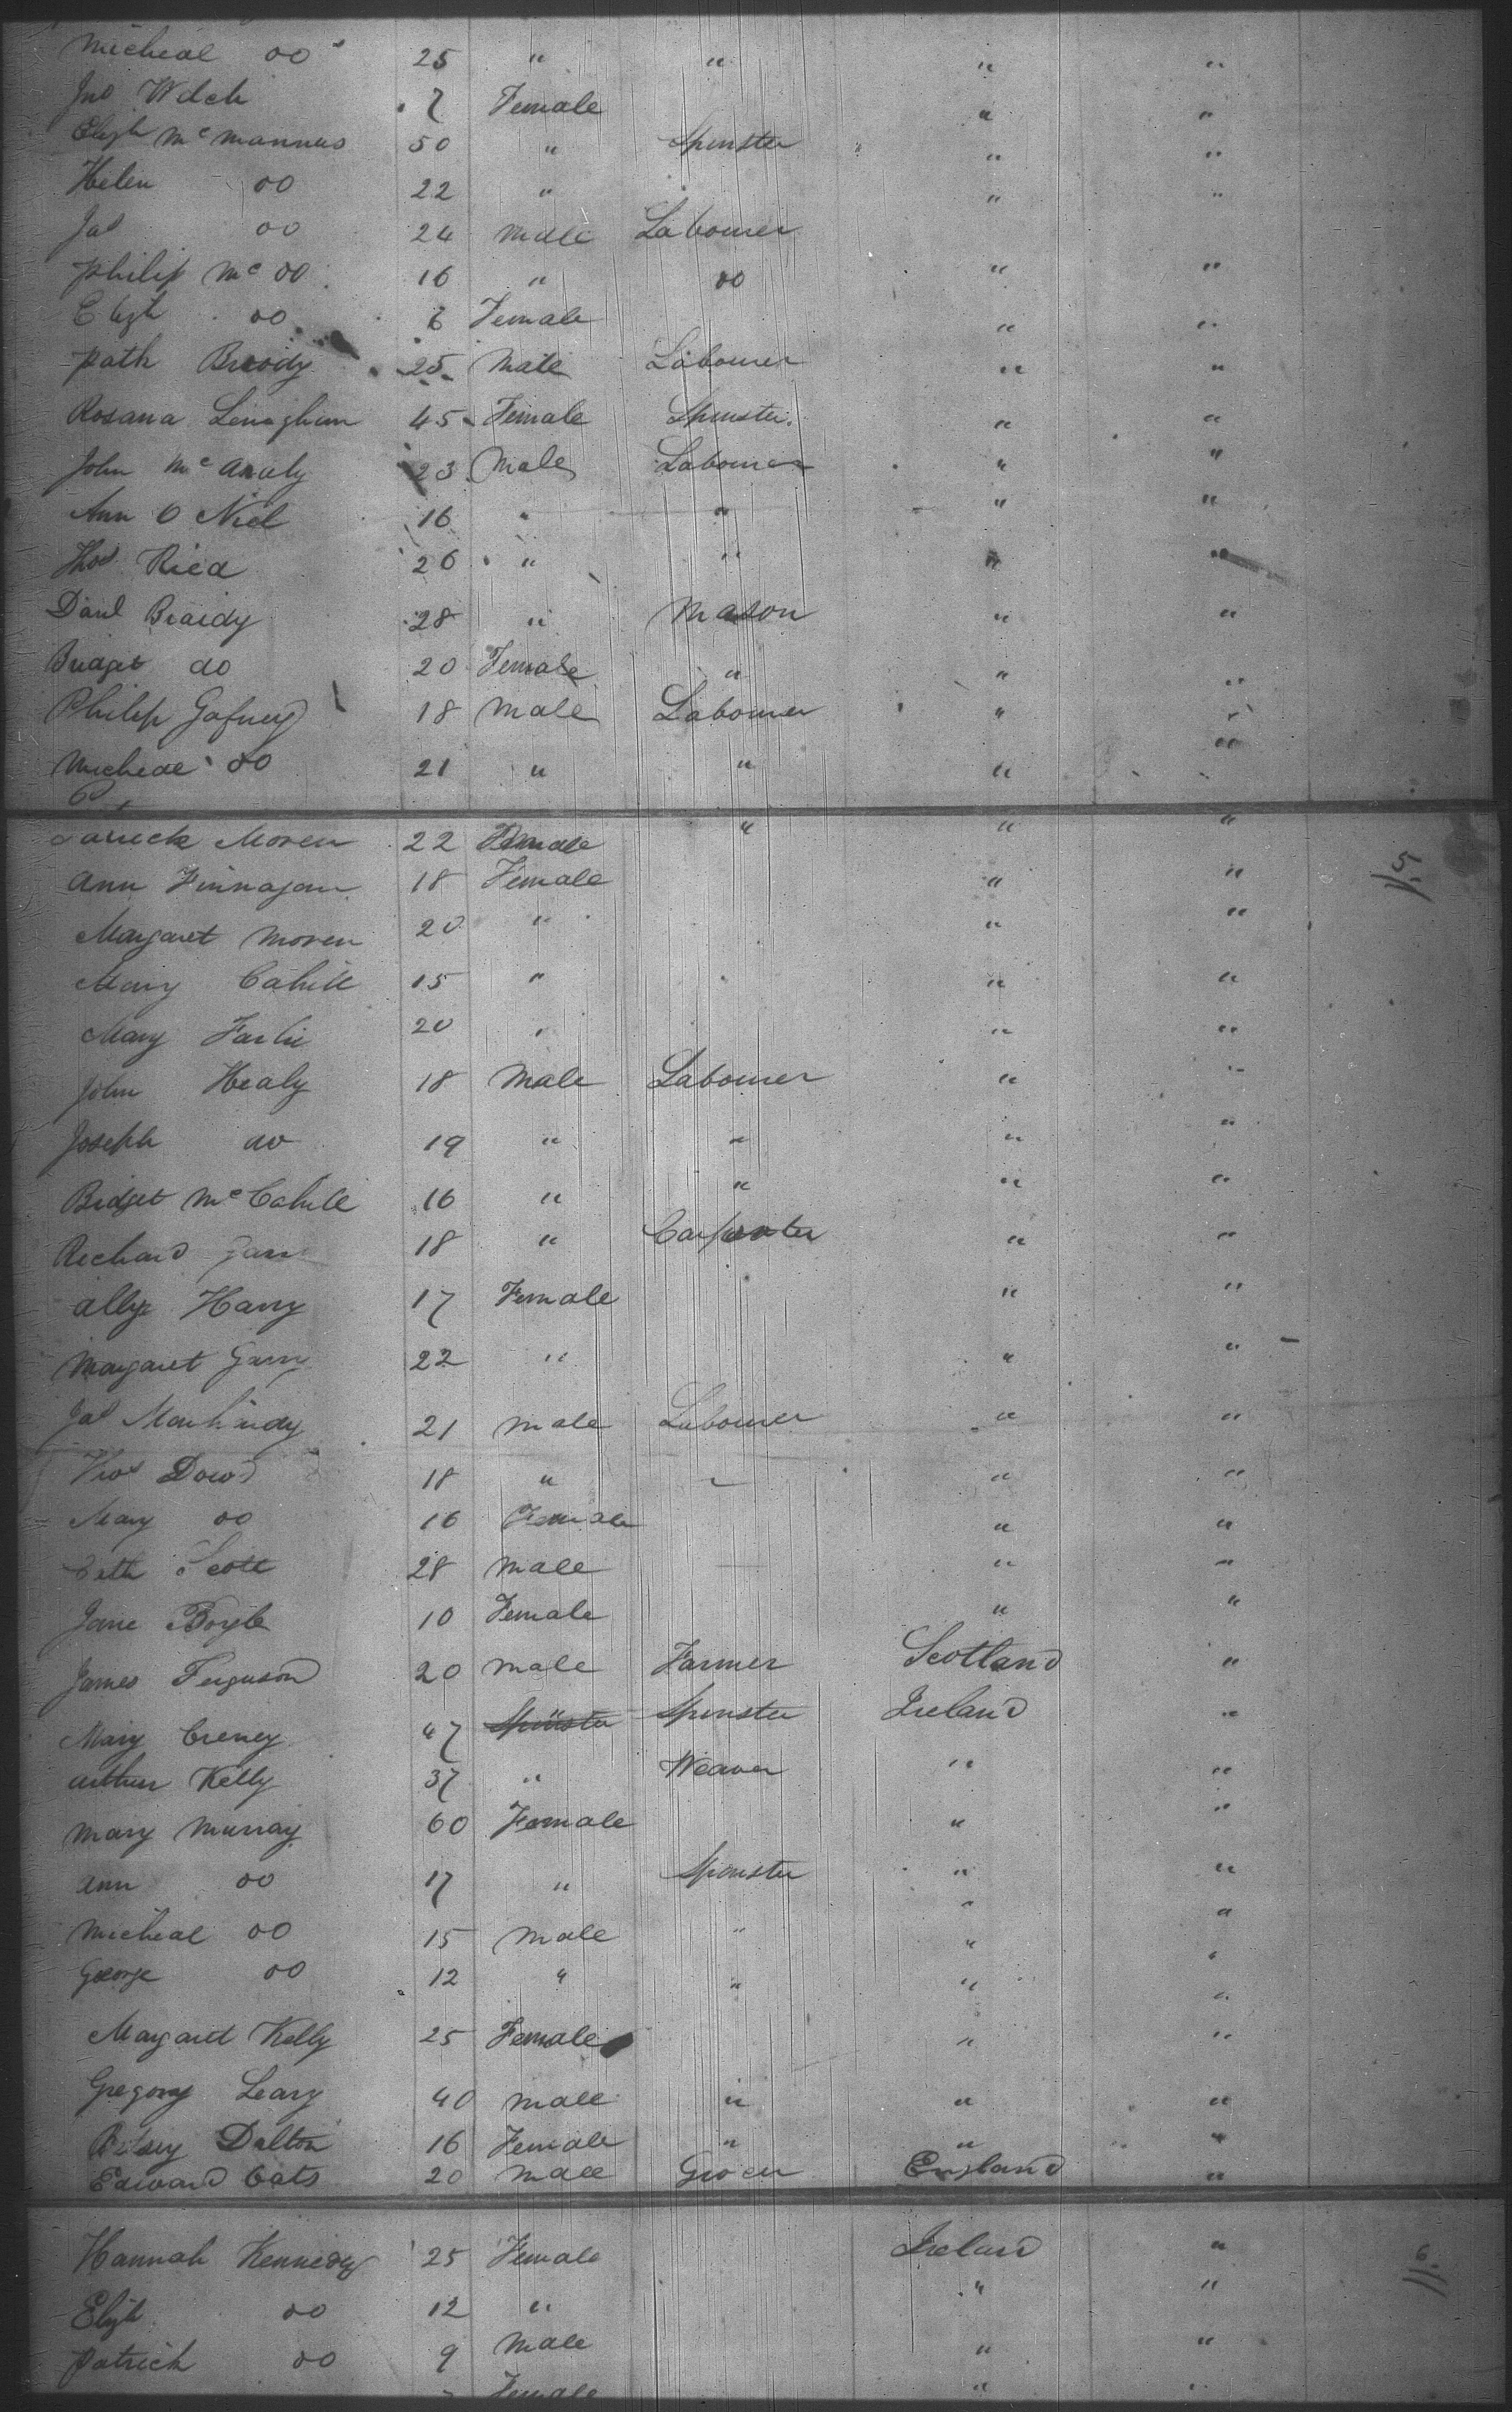 Micheal do 25 " " " "
Jno Welch 7 Female " "
Elizh McMannus 50 " Spinster " "
Helen do 22 " " "
Jas do 24 Male Labourer
Philip Mc do 16 " do " "
Elizh do 6 Female " "
Path Broody 25 Male Labourer " "
Rosana Lenaghan 45 Female Spinster " "
John McAnaly 23 Male Labourer " "
Ann O Niel 16 " " " "
Thos Ried 26 " " " "
Danl Braidy 28 " Mason " "
Bridget do 20 Female " " "
Philip Gafney 18 Male Labourer " "
Micheal do 21 " " " "
Patrick Moren 22 Female " " "
Ann Finnagan 18 Female " "
Margaret Moren 20 " " "
Mary Cahill 15 " " "
Mary 20 " " "
John Healy 18 Male Labourer " "
Joseph do 19 " " " "
Bidget McCahill 16 " " " "
Richard 18 " Carpenter " "
Harry 17 Female " "
Margaret Garry 22 " " "
Jas 21 Male Labourer " "
Thos Dowd 18 " " " "
Mary do 16 Female " "
Scott 28 Male " "
Jane Boyle 10 Female " "
James Ferguson 20 Male Farmer Scotland "
Mary Creney 47 Spinster Spinster Ireland "
Arthur Kelly 37 " Weaver " "
Mary Murray 60 Female " "
Ann do 17 " Spinster " "
Micheal do 15 Male " " "
George do 12 " " " "
Margaret Kelly 25 Female " "
Gregory Leary 40 Male " " "
Betsey Dalton 16 Female " " "
Edward Cats 20 Male Grocer England "
Hannah Kennedy 25 Female Ireland "
Elizh do 12 " " "
Patrick do 9 Male " "
Female " "